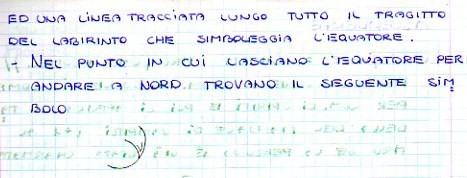 ED UNA LINEA TRACCIATA LUNGO TUTTO IL TRAGITTO
DEL LABIRINTO CHE SIMBOLEGGIA L'EQUATORE.
- NEL PUNTO IN CUI LASCIANO L'EQUATORE PER
ANDARE A NORD TROVANO IL SEGUENTE SIM
BOLO